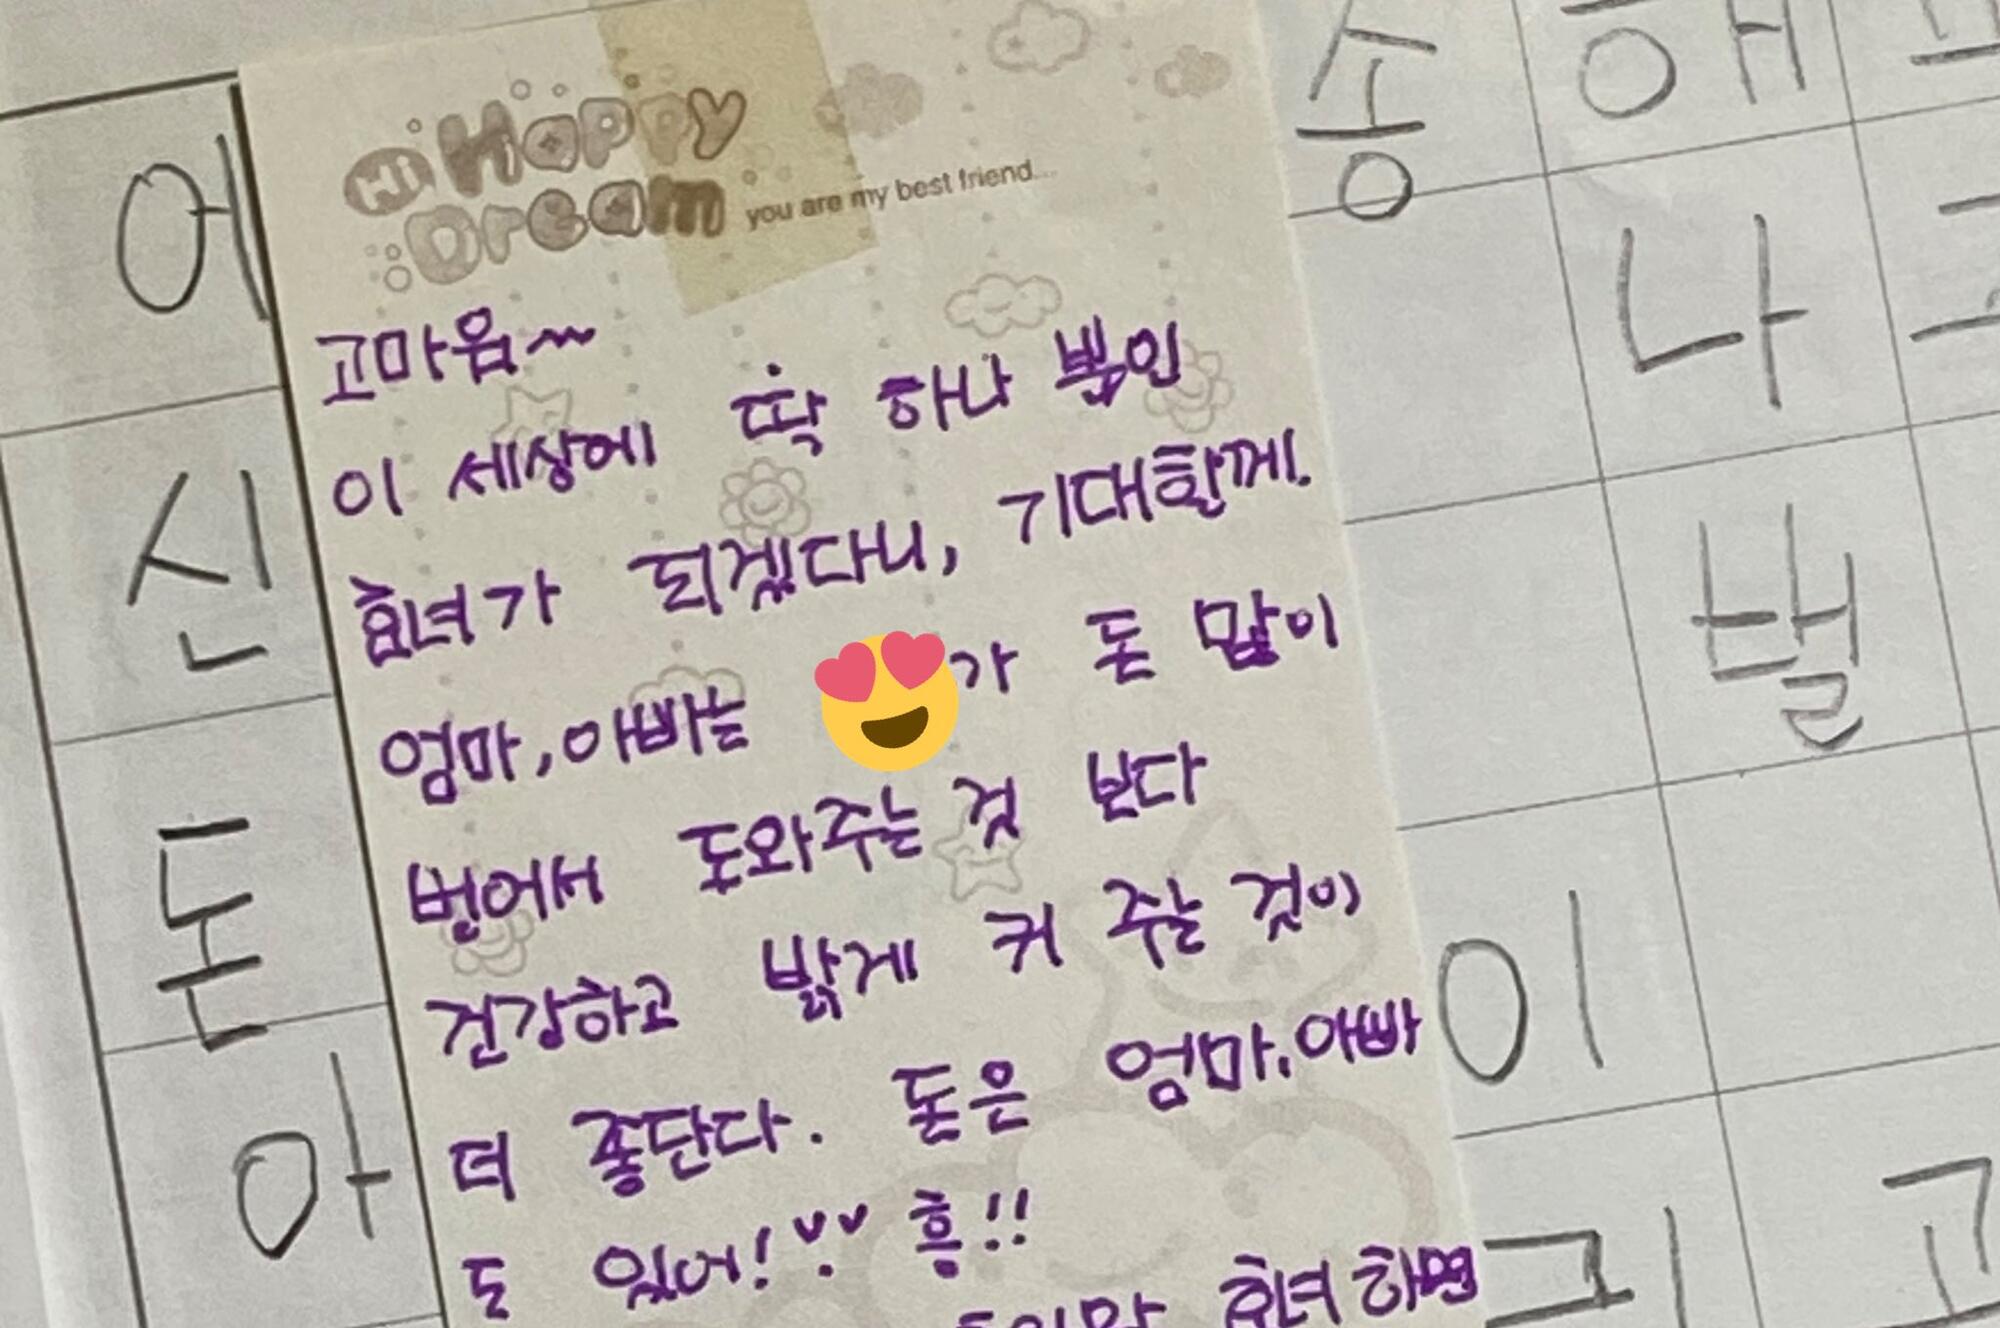 Hi Happy
Dream you are my best friend...
고마움~
이 세상에 딱 하나 뿐인
효녀가 되겠다니, 기대할께.
엄마, 아빠는 가 돈 많이
벌어서 도와주는 것 보다
건강하고 밝게 커 주는 것이
더 좋단다. 돈은 엄마, 아빠
도 있어! 흥!!
효녀 하면
어
신
돈
아
송 해
나
발
이